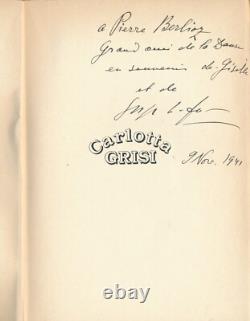 a Pierre Berlioz
Grand ami de la Danse
en souvenir de Giselle
et de
Carlotta
GRISI
9 Nov. 1941
© ebay